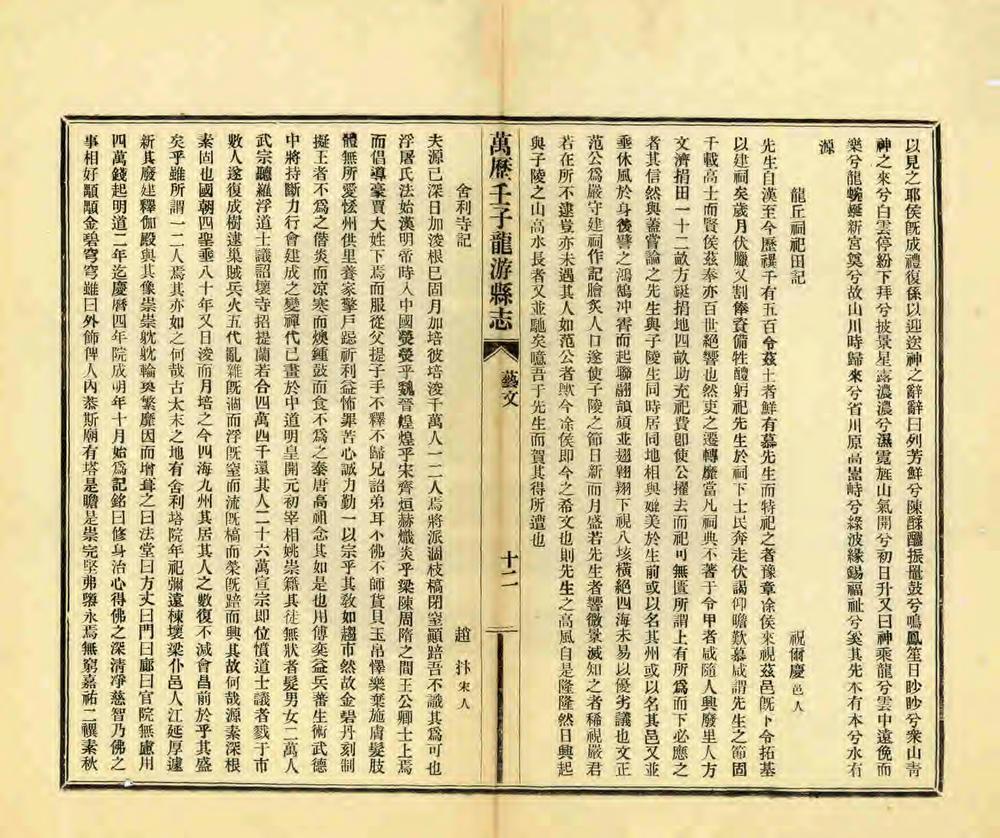 以見之耶侯既成禮復係以迎送神之辭辭曰列芳鮮兮陳酥醲振鼉鼓兮鳴鳳笙日眇眇兮衆山靑
神之來兮白雲停紛下拜兮披景星露濃濃兮濕霓旌山氣開兮初日升又曰神乘龍兮雲中遠俛而
樂兮龍蜿蜒新宮奐兮故山川時歸來兮省川原高嵩峙兮綠波緣錫福祉兮奚其先木有本兮水有
源
龍丘祠祀田記
祝爾慶邑人
先生自漢至今歷禩千有五百令茲土者鮮有慕先生而特祀之者豫章凃侯來視茲邑既卜令拓基
以建祠矣歲月伏臘又割俸資備牲醴躬祀先生於祠下士民奔走伏謁仰瞻歎慕咸謂先生之節固
千載高士而賢侯茲奉亦百世絕響也然吏之遷轉靡當凡祠典不著于令甲者咸隨人興廢里人方
文濟捐田一十二畝方鋌捐地四畝助充祀費卽使公擢去而祀可無匱所謂上有所爲而下必應之
者其信然與蓋嘗論之先生與子陵生同時居同地相與媲美於生前或以名其州或以名其邑又並
垂休風於身後譬之鴻鵠冲霄而起聯翩頡頏並翅翱翔下視八垓橫絕四海未易以優劣議也文正
范公爲嚴守建祠作記膾炙人口遂使子陵之節日新而月盛若先生者響微景滅知之者稀視嚴君
若在所不逮豈亦未遇其人如范公者歟今凃侯即今之希文也則先生之高風自是隆隆然日興起
與子陵之山高水長者又並馳矣噫吾于先生而賀其得所遭也
萬歷壬子龍游縣志
藝文
十二
舍利寺記
趙抃宋人
夫源已深日加浚根已固月加培彼培浚千萬人一二人焉將派涸枝槁閉窒顚踣吾不識其爲可也
浮屠氏法始漢明帝時入中國熒熒乎魏晉煌煌乎宋齊烜赫熾炎乎梁陳周隋之間王公卿士上焉
而倡導豪賈大姓下焉而服從父提子手不釋不歸兄詔弟耳不佛不師貨貝玉帛懌樂棄施膚髮肢
體無所愛恡州供里養家擎戶跽祈利益怖罪苦心誠力勤一以宗乎其敎如趨市然故金碧丹刻制
擬王者不爲之僭炎而凉寒而燠鍾鼓而食不爲之泰唐高祖念其如是也用傅奕益兵蕃生術武德
中將持斷力行會建成之變禪代已畫於中道明皇開元初宰相姚崇籍其徒無狀者髮男女二萬人
武宗聽羅浮道士議詔壞寺招提蘭若合四萬四千還其人二十六萬宣宗即位憤道士議者戮于市
數人遂復成樹逮巢賊兵火五代亂雜既涸而浮既窒而流既槁而榮既踣而興其故何哉源素深根
素固也國朝四聖垂八十年又日浚而月培之今四海九州其居其人之數復不減會昌前於乎其盛
矣乎雖所謂一二人焉其亦如之何哉古太末之地有舍利塔院年祀彌遠棟壞梁仆邑人江延厚遽
新其廢建釋伽殿與其像崇崇躭躭輪奐繁靡因而增葺之曰法堂曰方丈曰門曰廊曰官院無慮用
四萬錢起明道二年迄慶曆四年院成明年十月始爲記銘曰修身治心得佛之深清凈慈智乃佛之
事相好顒顒金碧穹穹雖曰外飾俾人內恭斯廟有塔是瞻是崇完堅弗隳永焉無窮嘉祐二禩素秋